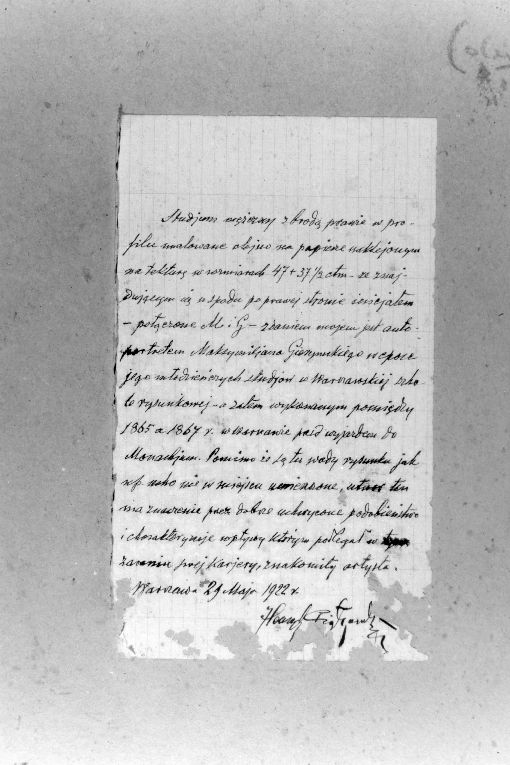 Studjum mężczyzny z brodą prawie w pro-
filu malowane olejno na papierze naklejonym
na tekturę w rozmiarach 47 + 37 1/2 ctm - ze znaj-
dującym się u spodu po prawej stronie inicjałem
- połączone M i G - zdaniem mojem jest auto-
portretem Maksymiljana Gierymskiego w epoce
jego młodzieńczych studjów w Warszawskiej szko-
le rysunkowej - a zatem wykonanym pomiędzy
1865 a 1867 r. w Warszawie przed wyjazdem do
Monachjum. Pomimo że są tu wady rysunku jak
np. ucho nie w miejscu umieszczone, utwór ten
ma znaczenie przez dobrze uchwycone podobieństwo
i charakteryzuje wpływy którym podlegał w
zaraniu swej karjery, znakomity artysta.
Warszawa 29 Maja 1922 r.
Henryk Piątkowski